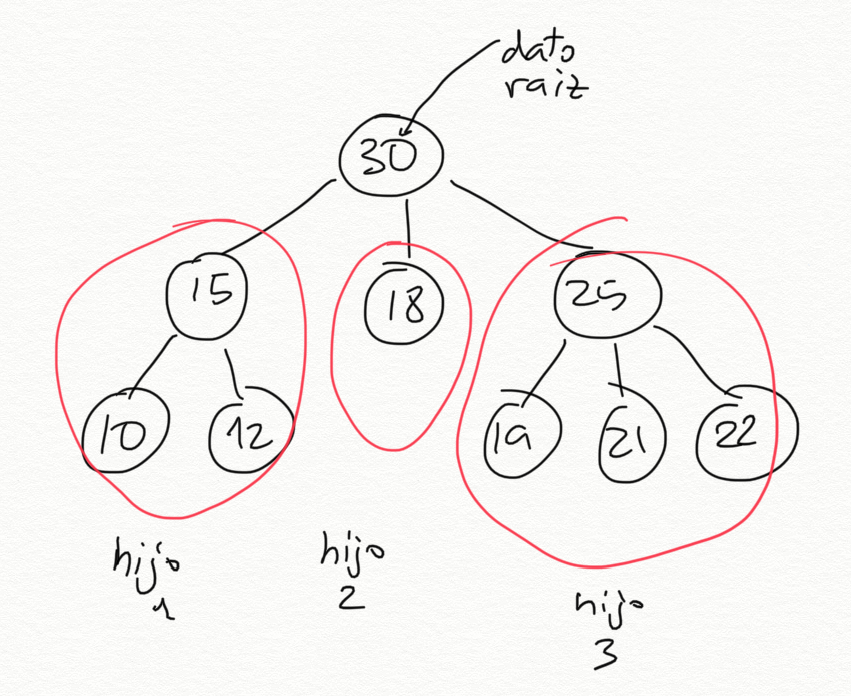 dato
raiz
30
15
18
25
10
12
19
21
22
hijo
1
hijo
2
hijo
3